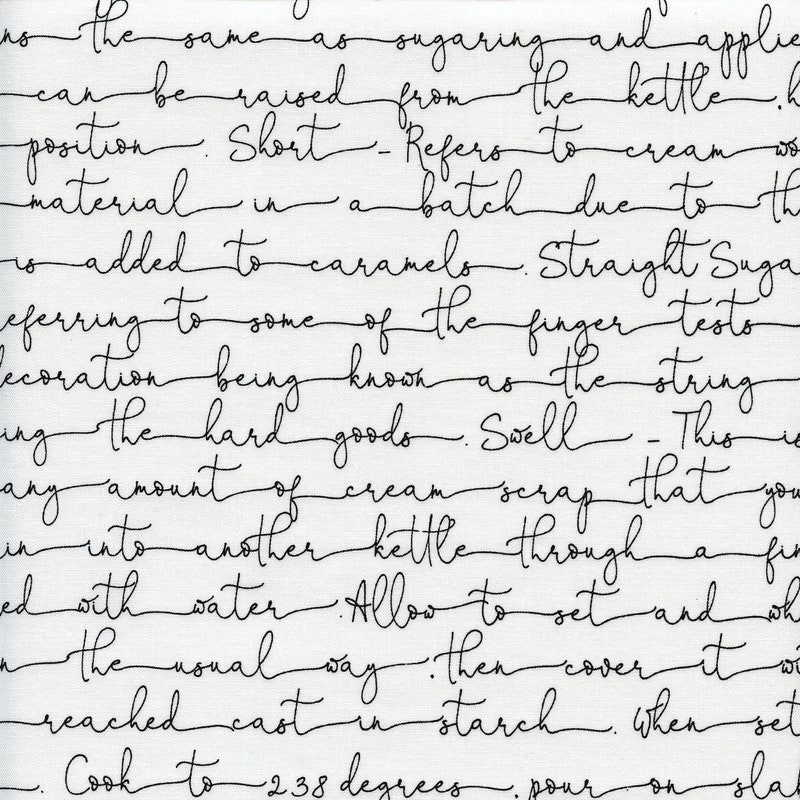 ns the same as sugaring and applie
can be raised from the kettle . h
position . Short - Refers to cream wo
material in a batch due to th
is added to caramels . Straight Suga
eferring to some of the finger tests
ecoration being known as the string
ing the hard goods . Swell - This is
any amount of cream scrap that you
in into another kettle through a fin
ed with water . Allow to set and wh
n the usual way . then cover it wi
reached cast in starch . When set
. Cook to 238 degrees . pour on slab